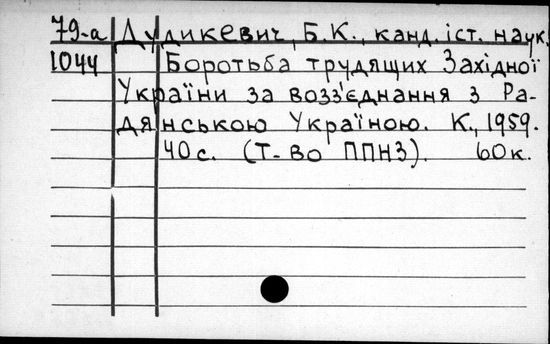 79-а Дудикевич, Б.К., канд. іст. наук.
1044 Боротьба трудящих Західної
України за возз'єднання з Ра-
дянською Україною. К., 1959.
40 с. (Т-во ППНЗ). 60 к.